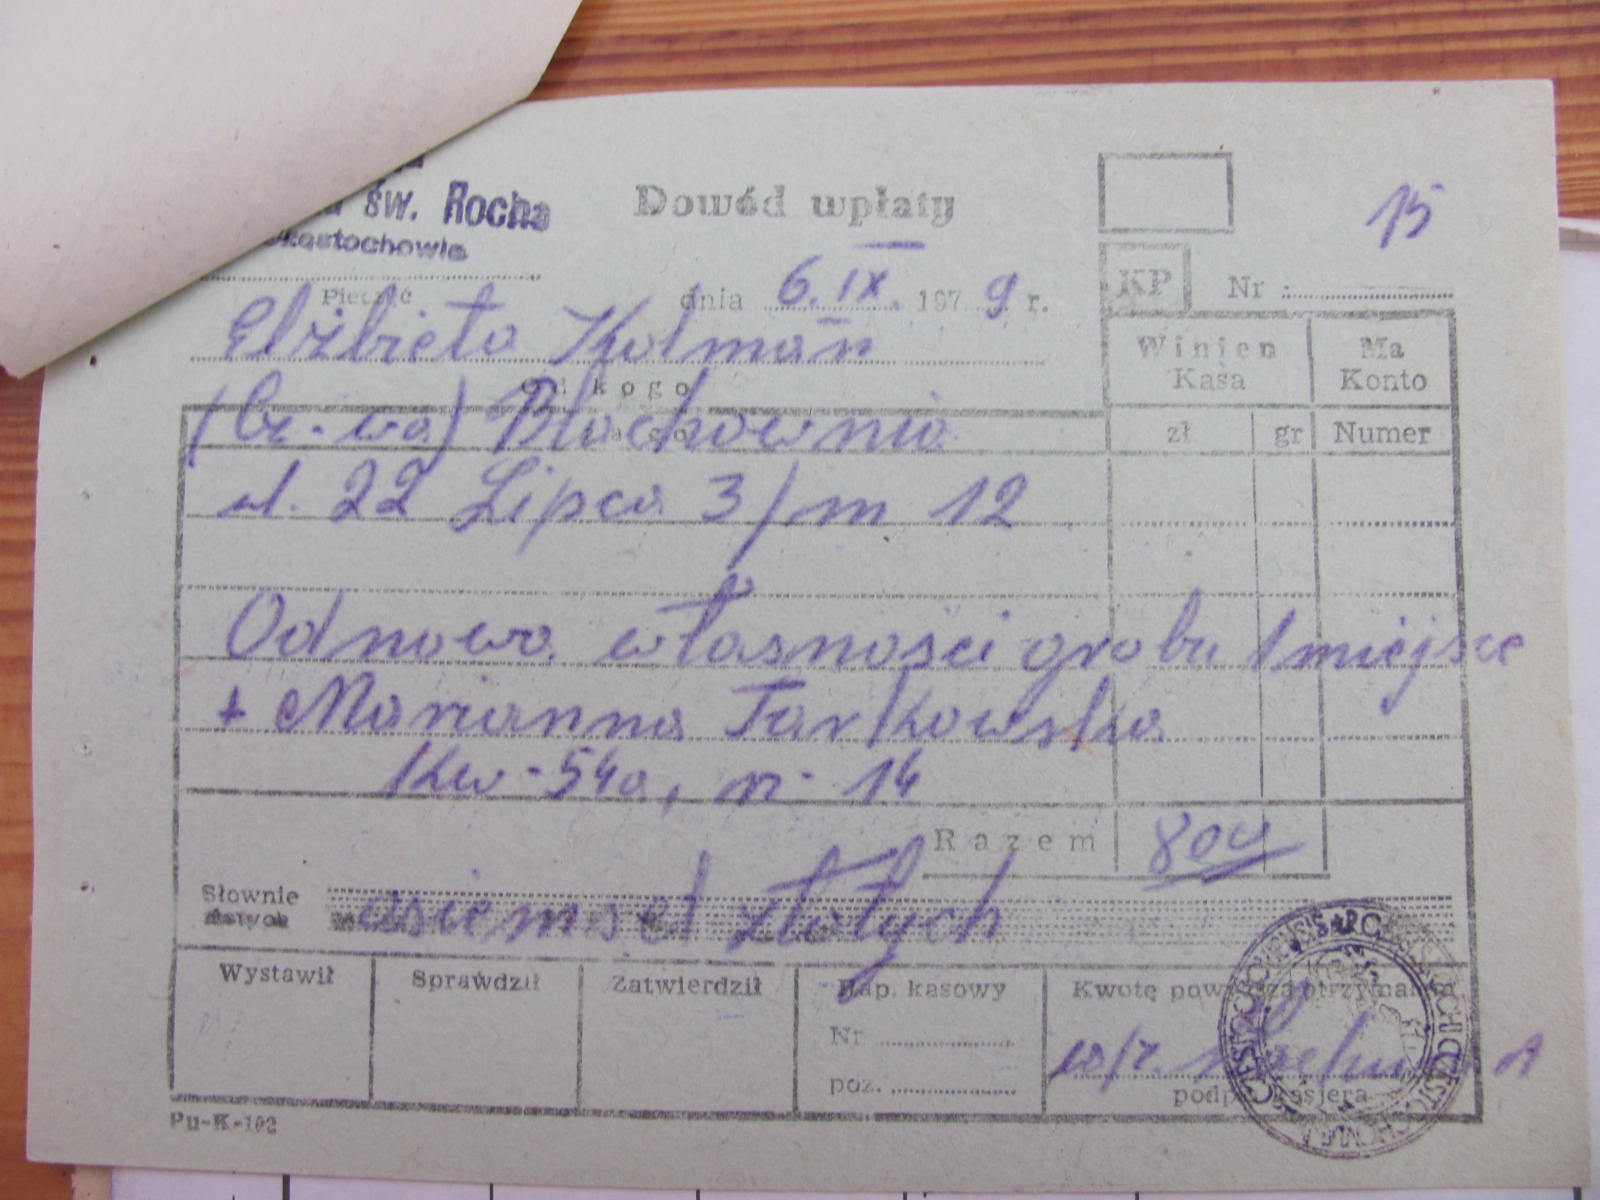 św. Rocha
Częstochowie
Dowód wpłaty
15
Pieczęć
dnia 6. IX. 1979 r.
KP
Nr
Elżbieta Kolman
Od kogo
Winien
Kasa
Ma
Konto
(Cz-wa) Blachownia
zł
gr
Numer
ul. 22 Lipca 3/m 12
Odnowa własności grobu 1 miejsce
+ Marianna Tarkowska
Kw. 54a, n. 14
Razem
800
Słownie
osiemset złotych
Wystawił
Sprawdził
Zatwierdził
Rap. kasowy
Kwotę powyższą otrzymałem
Nr
poz.
podpis kasjera
Pu-K-102